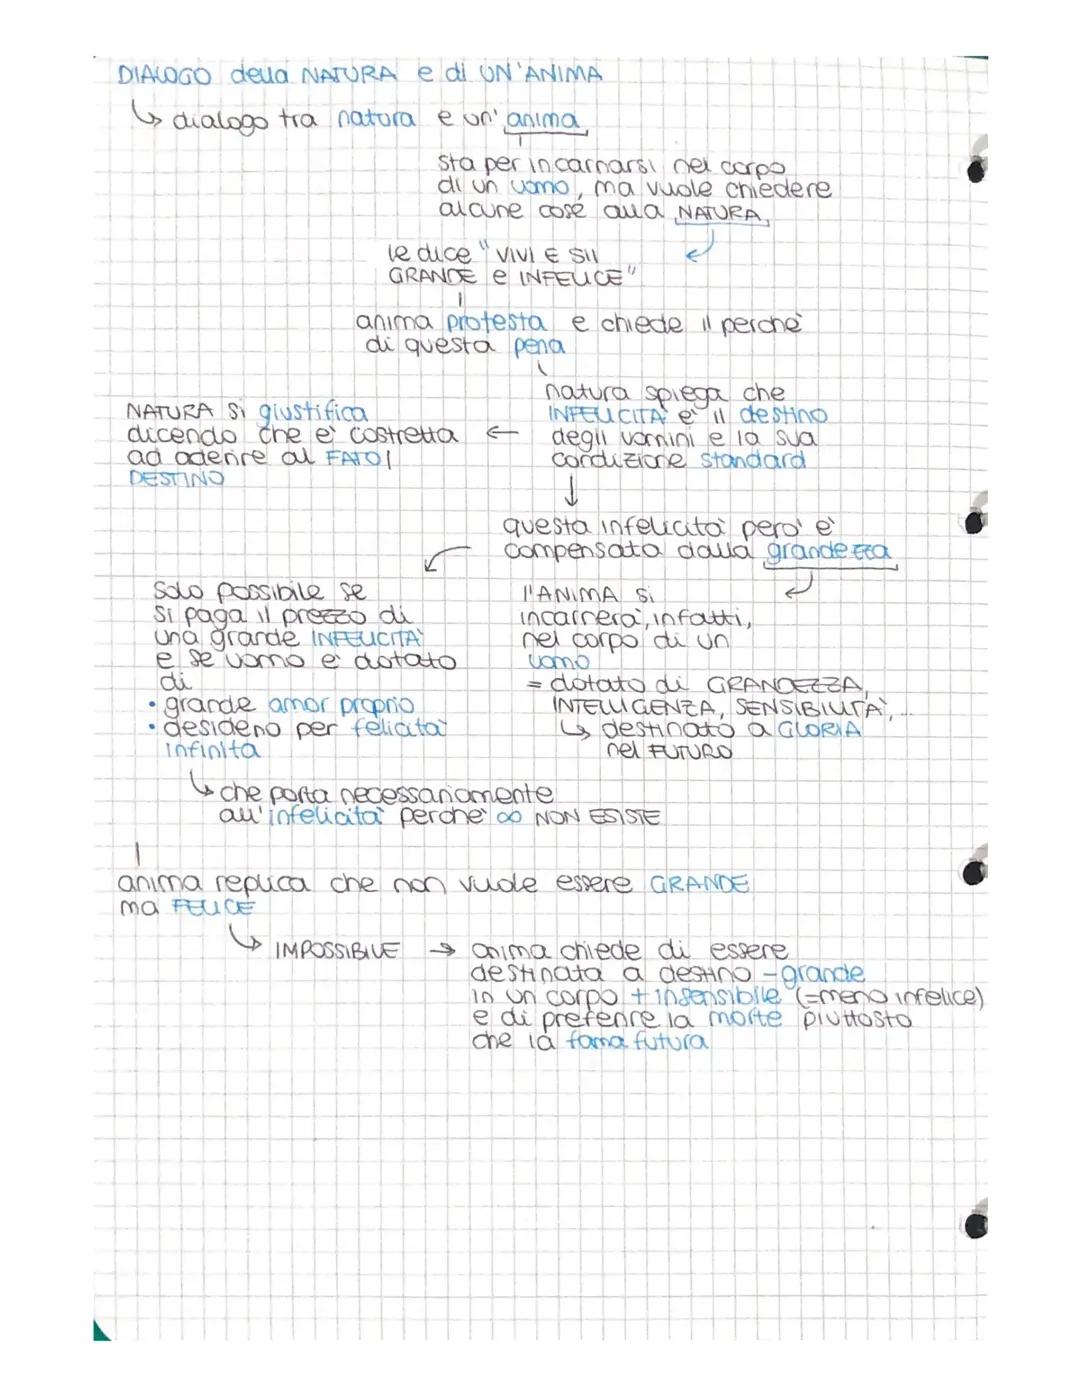 DIALOGO della NATURA e di UN'ANIMA
↳ dialogo tra natura e un' anima
sta per incarnarsi nel corpo
di un uomo, ma vuole chiedere
alcune cose alla NATURA
le dice "VIVI E SII
GRANDE e INFELICE"
anima protesta e chiede il perchè
di questa pena
natura spiega che
INFELICITÀ è il destino
degli uomini e la sua
condizione standard
NATURA si giustifica
dicendo che è costretta ←
ad aderire al FATO/
DESTINO
↓
questa infelicità però è
compensata dalla grandezza
solo possibile se
si paga il prezzo di
una grande INFELICITÀ
e se uomo è dotato
di
• grande amor proprio
• desiderio per felicità
infinita
↳ che porta necessariamente
all'infelicità perchè ∞ NON ESISTE
l'ANIMA si
incarnerà, infatti,
nel corpo di un
uomo
= dotato di GRANDEZZA,
INTELLIGENZA, SENSIBILITÀ, ...
↳ destinato a GLORIA
nel FUTURO
anima replica che non vuole essere GRANDE
ma FELICE
↳ IMPOSSIBILE → anima chiede di essere
destinata a destino - grande
in un corpo + insensibile (=meno infelice)
e di preferire la morte piuttosto
che la fama futura